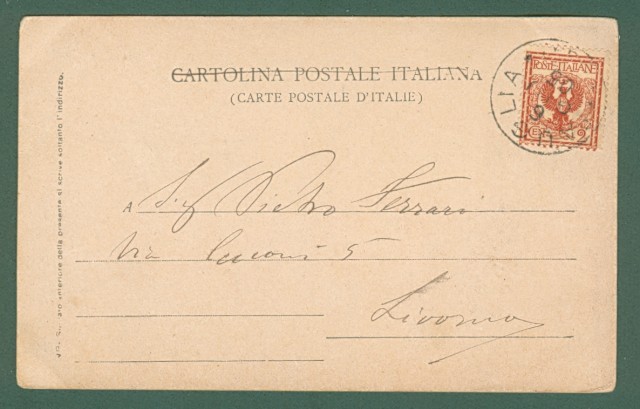 CARTOLINA POSTALE ITALIANA
(CARTE POSTALE D'ITALIE)
POSTE ITALIANE
CENT. 2
A Sig Pietro Ferrari
Via 5
Livorno
Sul lato anteriore della presente si scrive soltanto l'indirizzo.